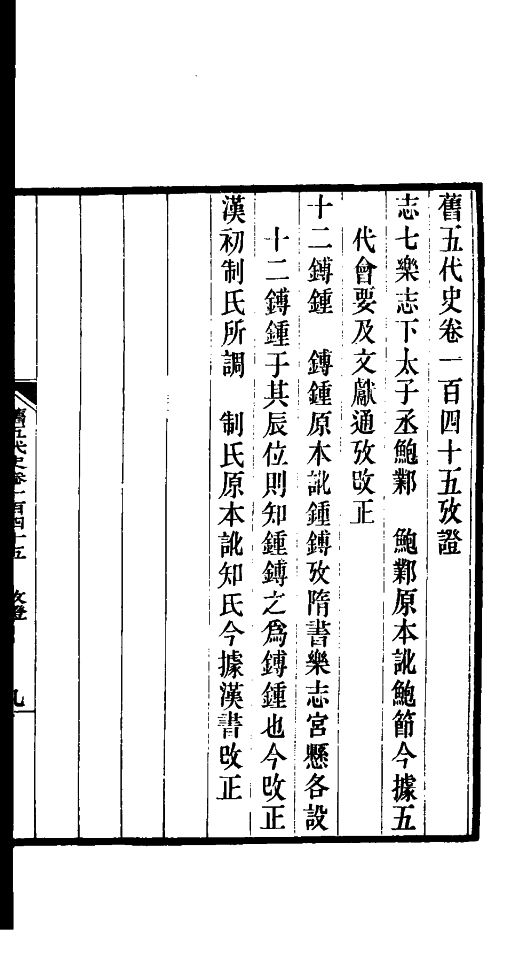 舊五代史卷一百四十五攷證
志七樂志下太子丞鮑鄴　鮑鄴原本訛鮑節今據五
代會要及文獻通攷改正
十二鎛鍾　鎛鍾原本訛鍾鎛攷隋書樂志宮懸各設
十二鎛鍾于其辰位則知鍾鎛之爲鎛鍾也今改正
漢初制氏所調　制氏原本訛知氏今據漢書改正
舊五代史卷一百四十五　攷證　九